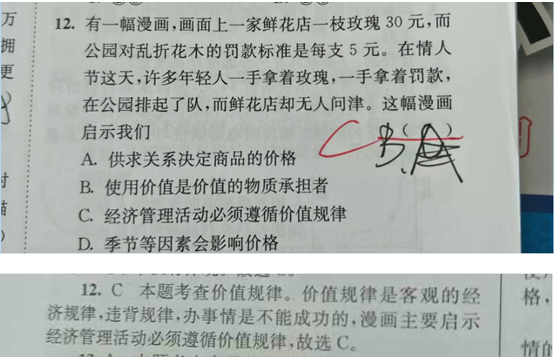 万
拥
更
时
描
12. 有一幅漫画,画面上一家鲜花店一枝玫瑰 30 元,而
公园对乱折花木的罚款标准是每支 5 元。在情人
节这天,许多年轻人一手拿着玫瑰,一手拿着罚款,
在公园排起了队,而鲜花店却无人问津。这幅漫画
启示我们 ( )
C
B
B.
A. 供求关系决定商品的价格
B. 使用价值是价值的物质承担者
C. 经济管理活动必须遵循价值规律
D. 季节等因素会影响价格
12. C 本题考查价值规律。价值规律是客观的经
济规律,违背规律,办事情是不能成功的,漫画主要启示
经济管理活动必须遵循价值规律,故选 C。
格,
情的